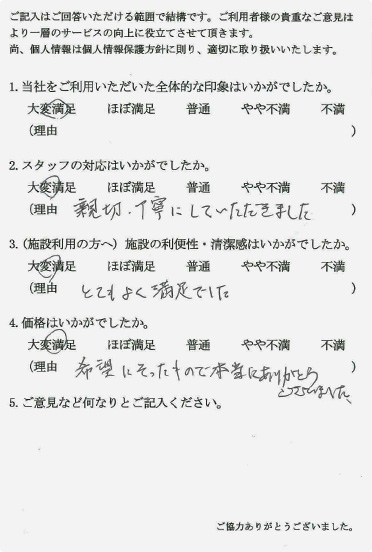 ご記入はご回答いただける範囲で結構です。ご利用者様の貴重なご意見は
より一層のサービスの向上に役立てさせて頂きます。
尚、個人情報は個人情報保護方針に則り、適切に取り扱いいたします。
1. 当社をご利用いただいた全体的な印象はいかがでしたか。
大変満足 ほぼ満足 普通 やや不満 不満
(理由 )
2. スタッフの対応はいかがでしたか。
大変満足 ほぼ満足 普通 やや不満 不満
(理由 親切、丁寧にしていただきました )
3. (施設利用の方へ) 施設の利便性・清潔感はいかがでしたか。
大変満足 ほぼ満足 普通 やや不満 不満
(理由 とてもよく満足でした )
4. 価格はいかがでしたか。
大変満足 ほぼ満足 普通 やや不満 不満
(理由 希望にそったもので本当にありがとう
ございました、
5. ご意見など何なりとご記入ください。
ご協力ありがとうございました。